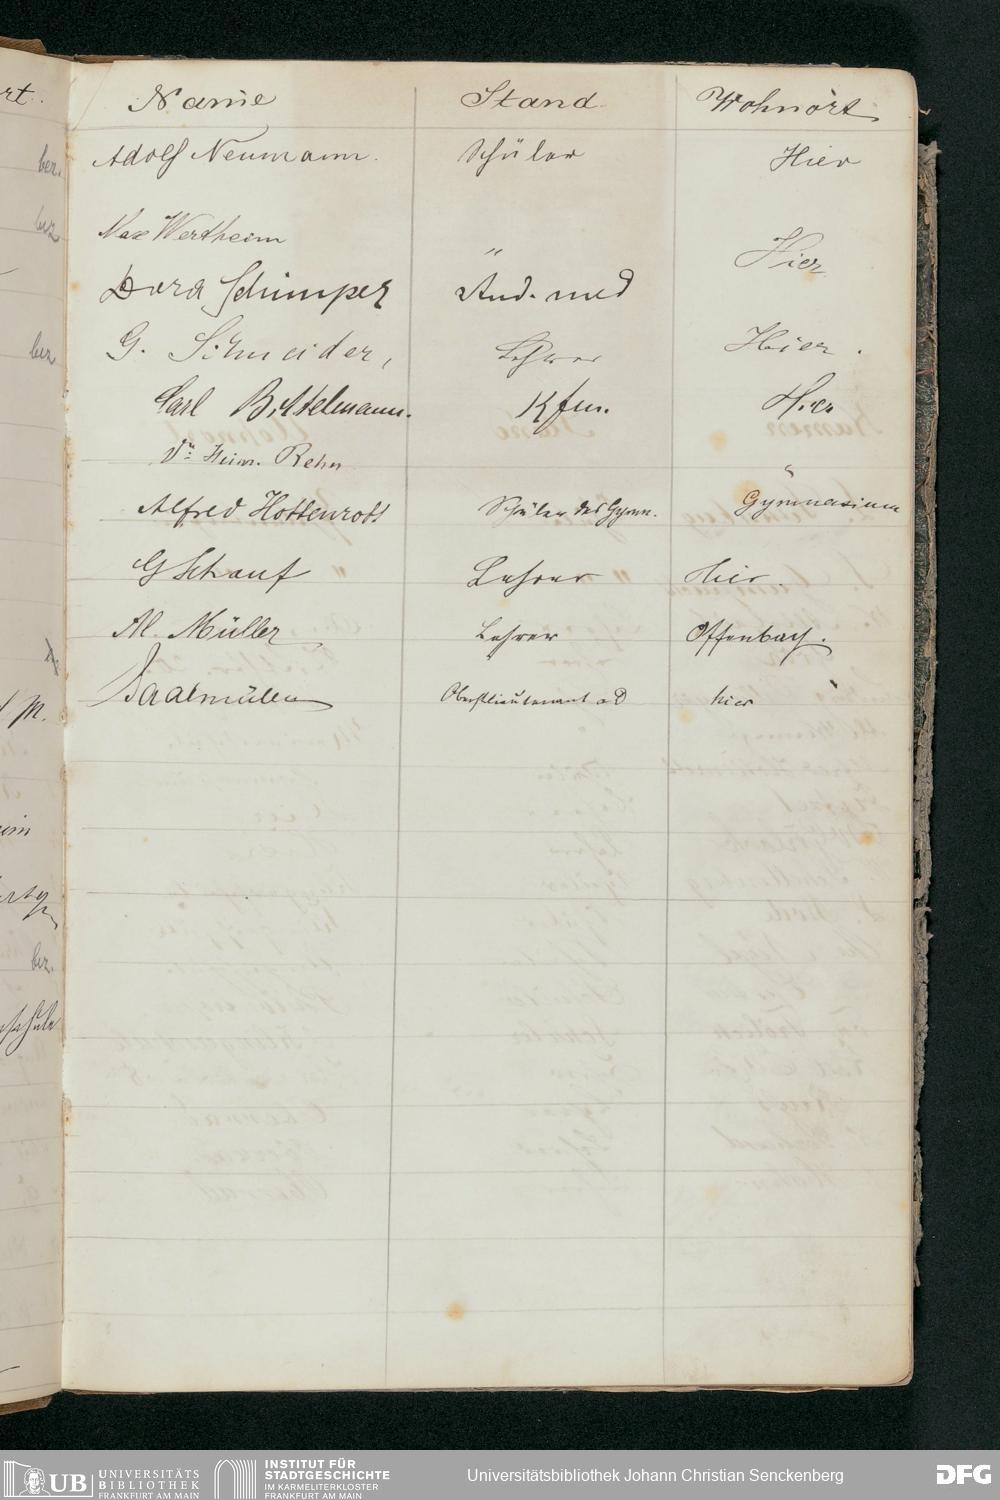 Name Stand Wohnort
Adolf Neumann. Schüler Hier
Max Wertheim " Hier
Dora Schimper Stud. med
G. Schneider, Lehrer Hier.
Carl Bittelmann. Kfm. Hier
Dr. Heinr. Rehn "
Alfred Hottenrott Schüler des Gymn. Gymnasium
G Schauf Lehrer Hier.
Al. Müller Lehrer Offenbach.
Saalmüller Oberstlieutenant aD hier
rt.
bez.
bez
bez
M.
bez.
UB UNIVERSITÄTS
BIBLIOTHEK
FRANKFURT AM MAIN
INSTITUT FÜR
STADTGESCHICHTE
IM KARMELITERKLOSTER
FRANKFURT AM MAIN
Universitätsbibliothek Johann Christian Senckenberg
DFG